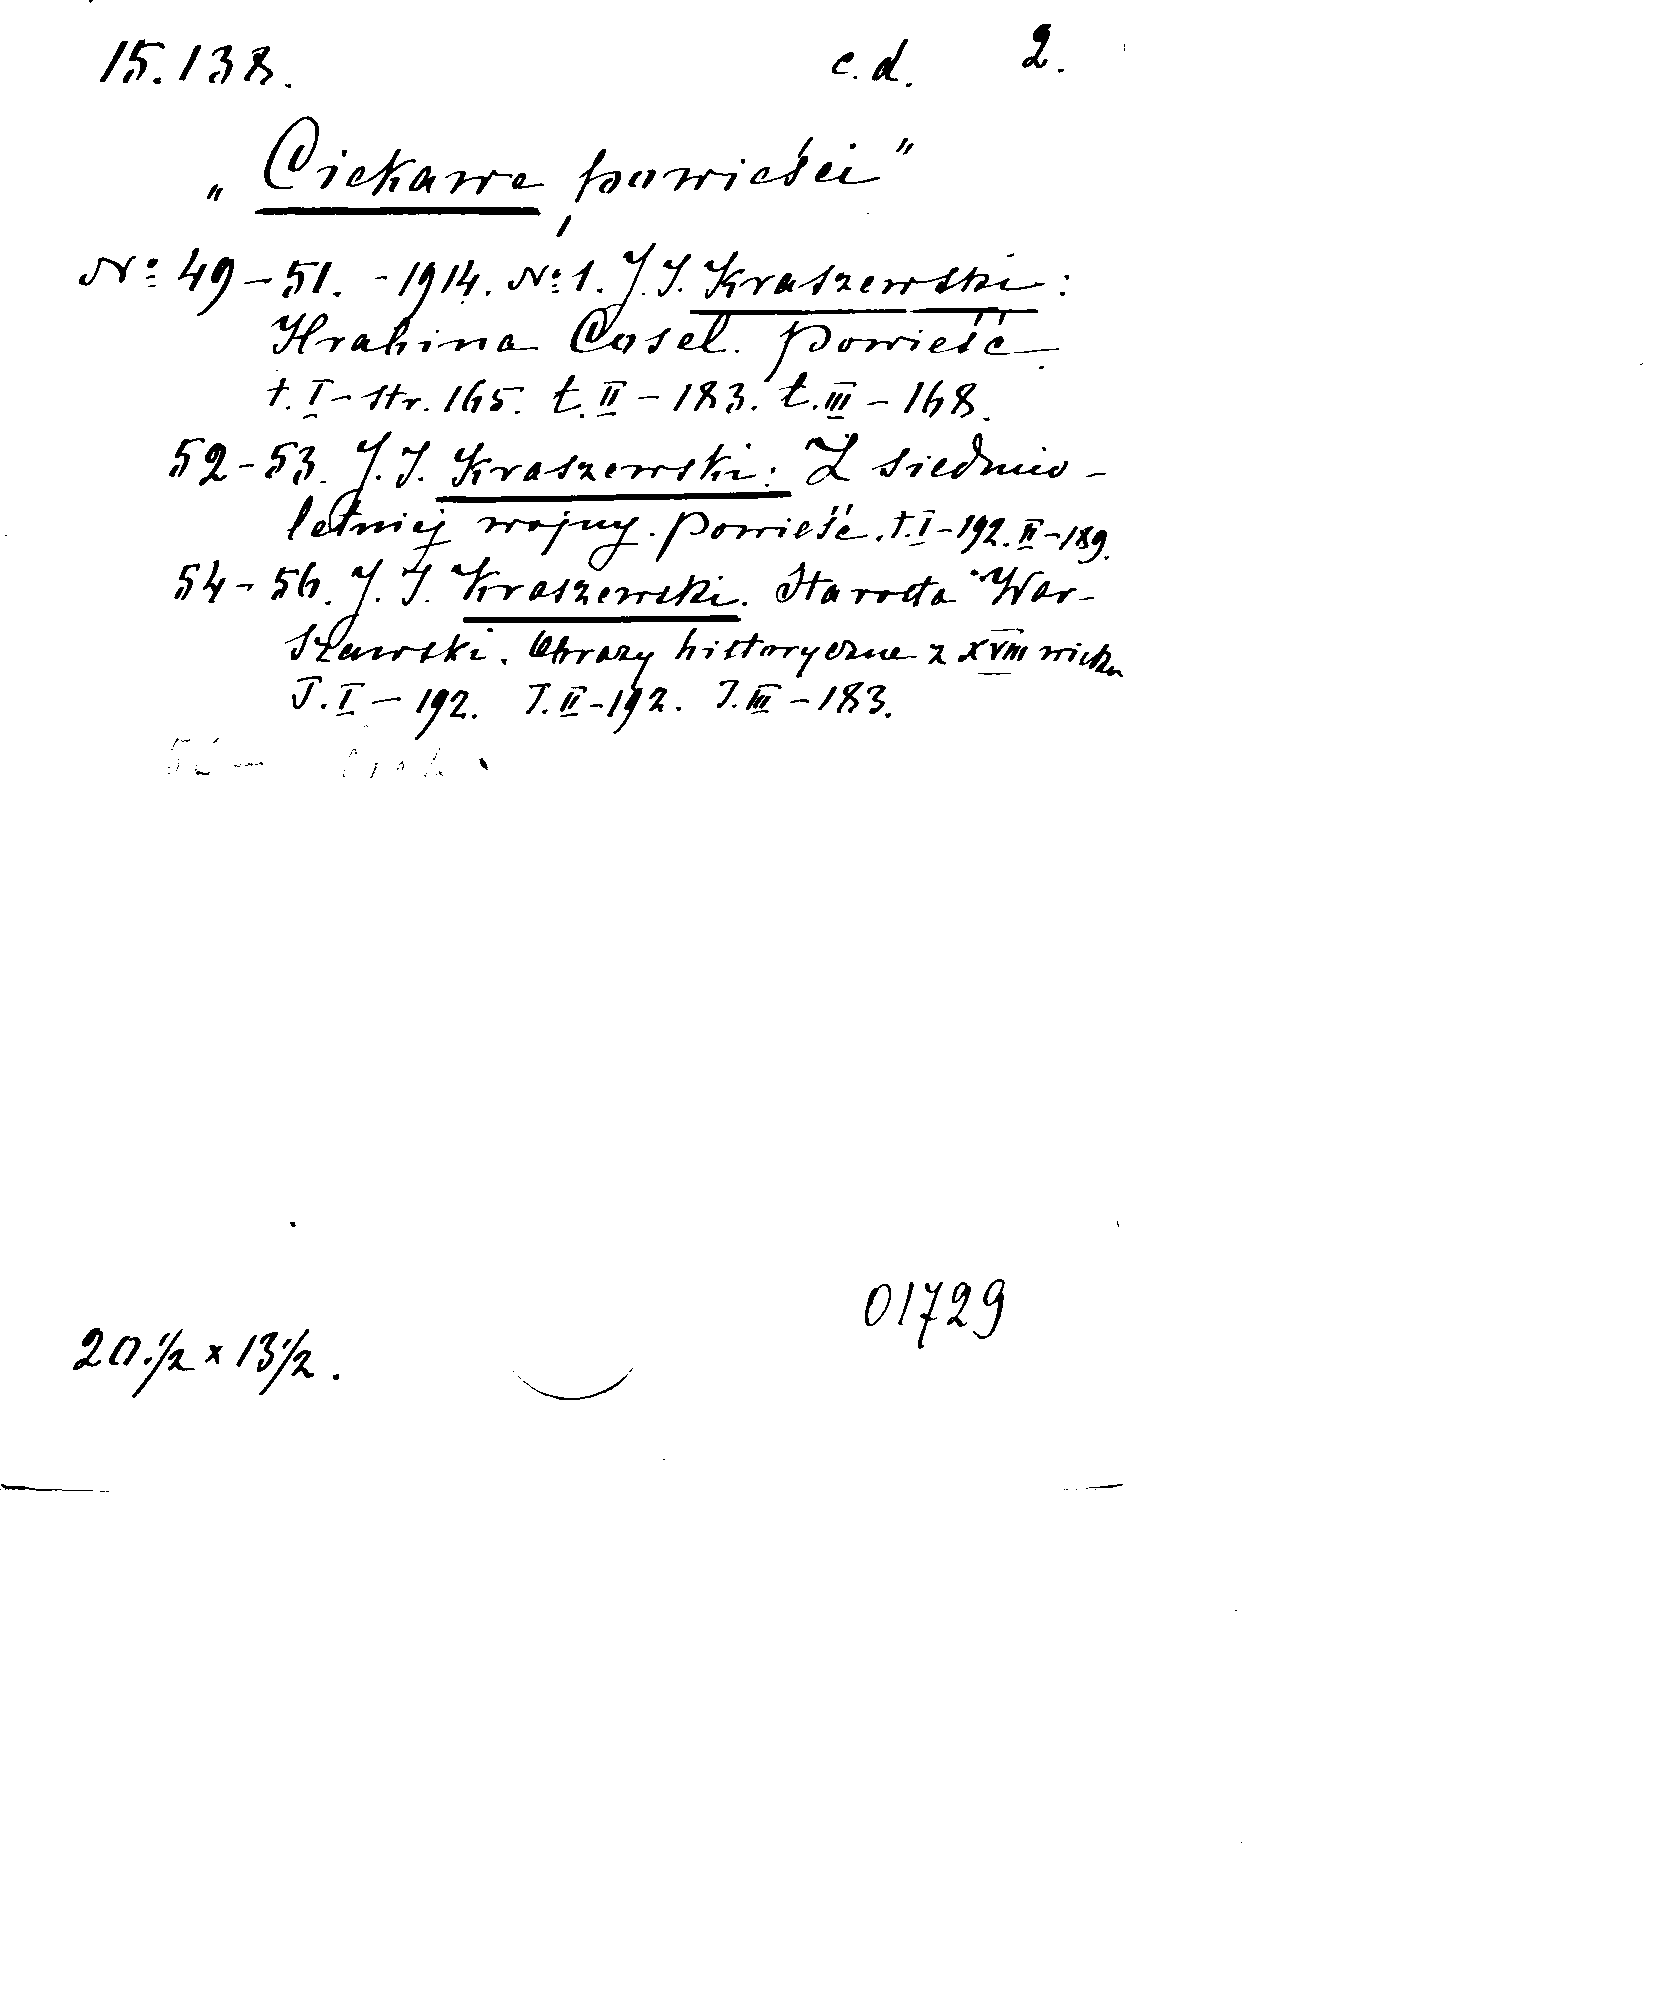 15.138. c.d. 2.
„Ciekawe powieści"
№ 49-51. - 1914. № 1. J. I. Kraszewski:
Hrabina Cosel. Powieść.
t. I - str. 165. t. II - 183. t. III - 168.
52-53. J. I. Kraszewski: Z siedmio-
letniej wojny. Powieść. t. I - 192. II - 189.
54-56. J. I. Kraszewski. Starosta War-
szawski. Obrazy historyczne z XVIII wieku
T. I - 192. T. II - 192. T. III - 183.
01729
20.1/2 x 13 1/2.